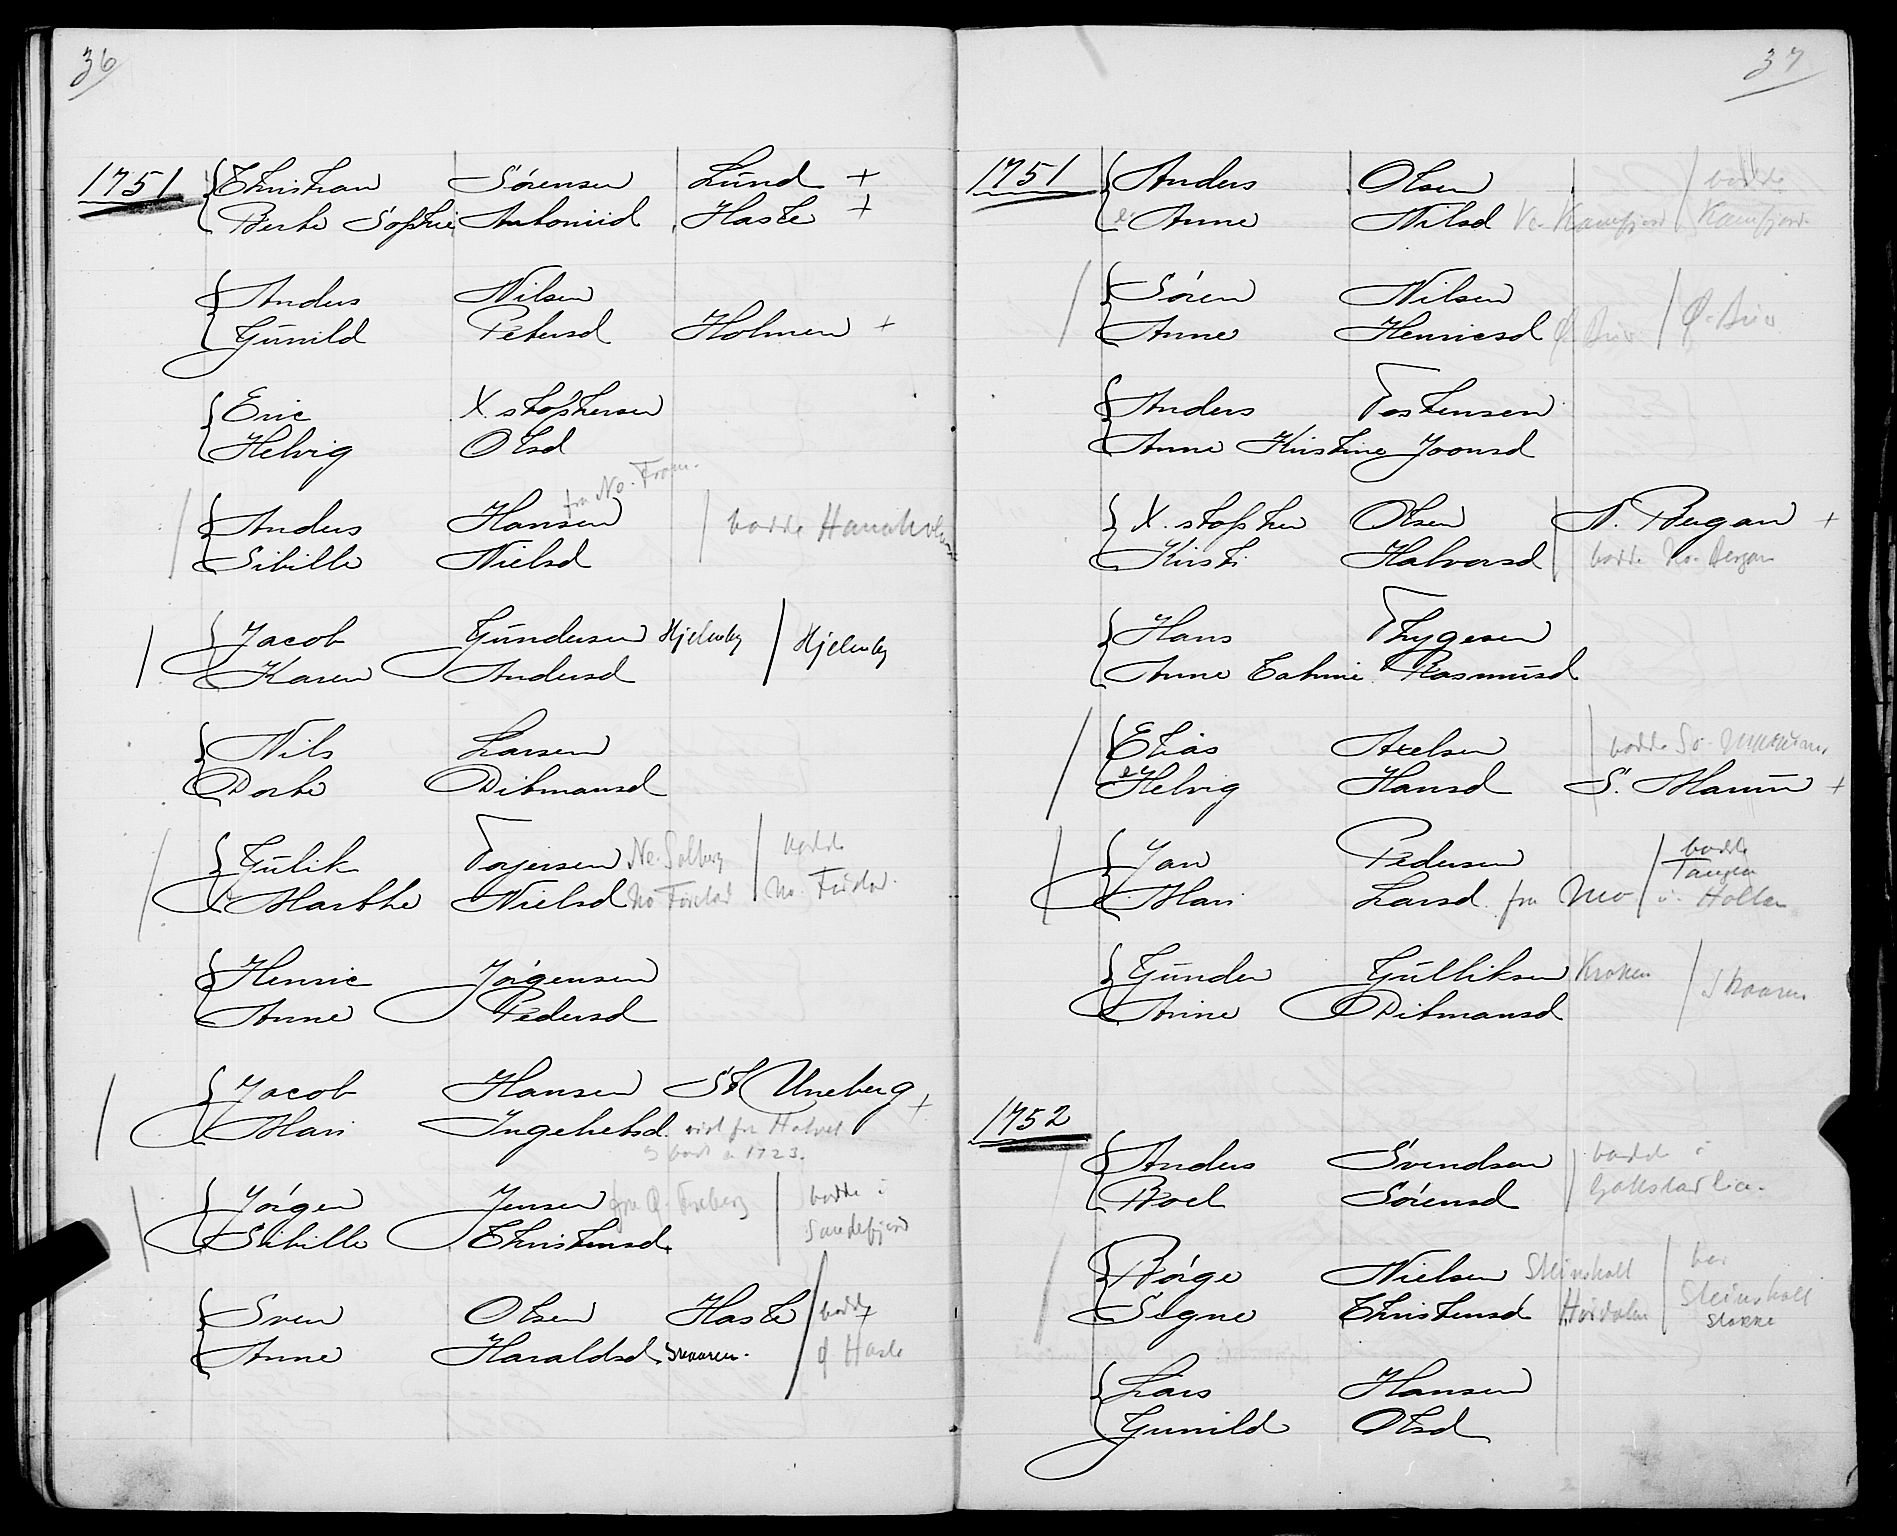 36
1751 Christian Sørensen Lund +
Berte Sophie Antoniid Hasle +
Anders Nilsen
Gunild Petersd Holmen +
Eric X stophersen
Helvig Olsd
fra No. Fram.
Anders Hansen bodde
Sibille Nielsd
Jacob Gundersen Hjelmby Hjelmby
Karen Andersd
Nils Larsen
Dorte Ditmansd
Gulik Torjersen Ne. Solberg bodde
Marthe Nielsd No
Henric Jørgensen
Anne Pedersd
Jacob Hansen St Uneberg +
Mari Ingebretsd vist fra
1723.
Jørgen Jensen fra Ø. bodde i
Sibille Christensd. Sandefjord
Sven Olsen Hasle bodde
Anne Haraldsd. Skaaren. Ø Hasle
37
1751 Anders Olsen bodde
e. Anne Nilsd Ve. Kamfjord Kamfjord
Søren Nilsen
Anne Henricsd
Anders Tostensen
Anne Kirstine Joonsd
X. stopher Olsen N. Bergan +
Kirsti Halvorsd bodde No. Bergan
Hans Thygesen
Anne Catrine Rasmusd
Elias Axelsen bodde So.
e Helvig Hansd S. +
Jan Pedersen bodde Tangen
Mari Larsd. fra Mo i Holtan
Gunder Gulliksen Kroken Skaaren
Anne Ditmansd
1752
Anders Svendsen bodde i
Boel Sørensd Gokstad lia.
Børge Nielsen Steinsholt
Signe Christensd Hørdalen Steinsholt
Stokke
Lars Hansen
Gunild Olsd